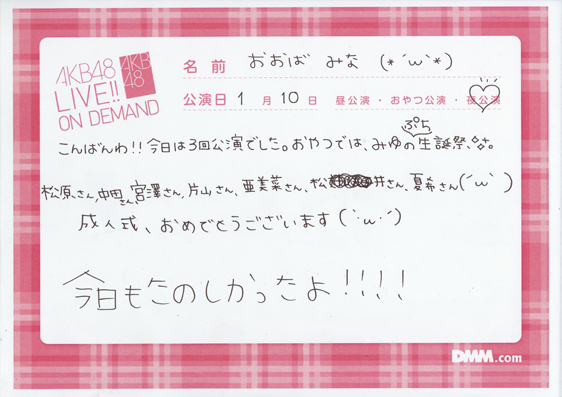 AKB48
LIVE!!
ON DEMAND
AKB
48
名前 おおば みな (*´ω`*)
公演日 1月10日 昼公演・おやつ公演・夜公演
こんばんわ!!今日は3回公演でした。おやつでは、みゆのぷち生誕祭、
松原さん,中田さん,宮澤さん、片山さん、亜美菜さん、松井さん、夏希さん(´ω`)
成人式、おめでとうございます(`・ω・´)
今日もたのしかったよ!!!!
DMM.com